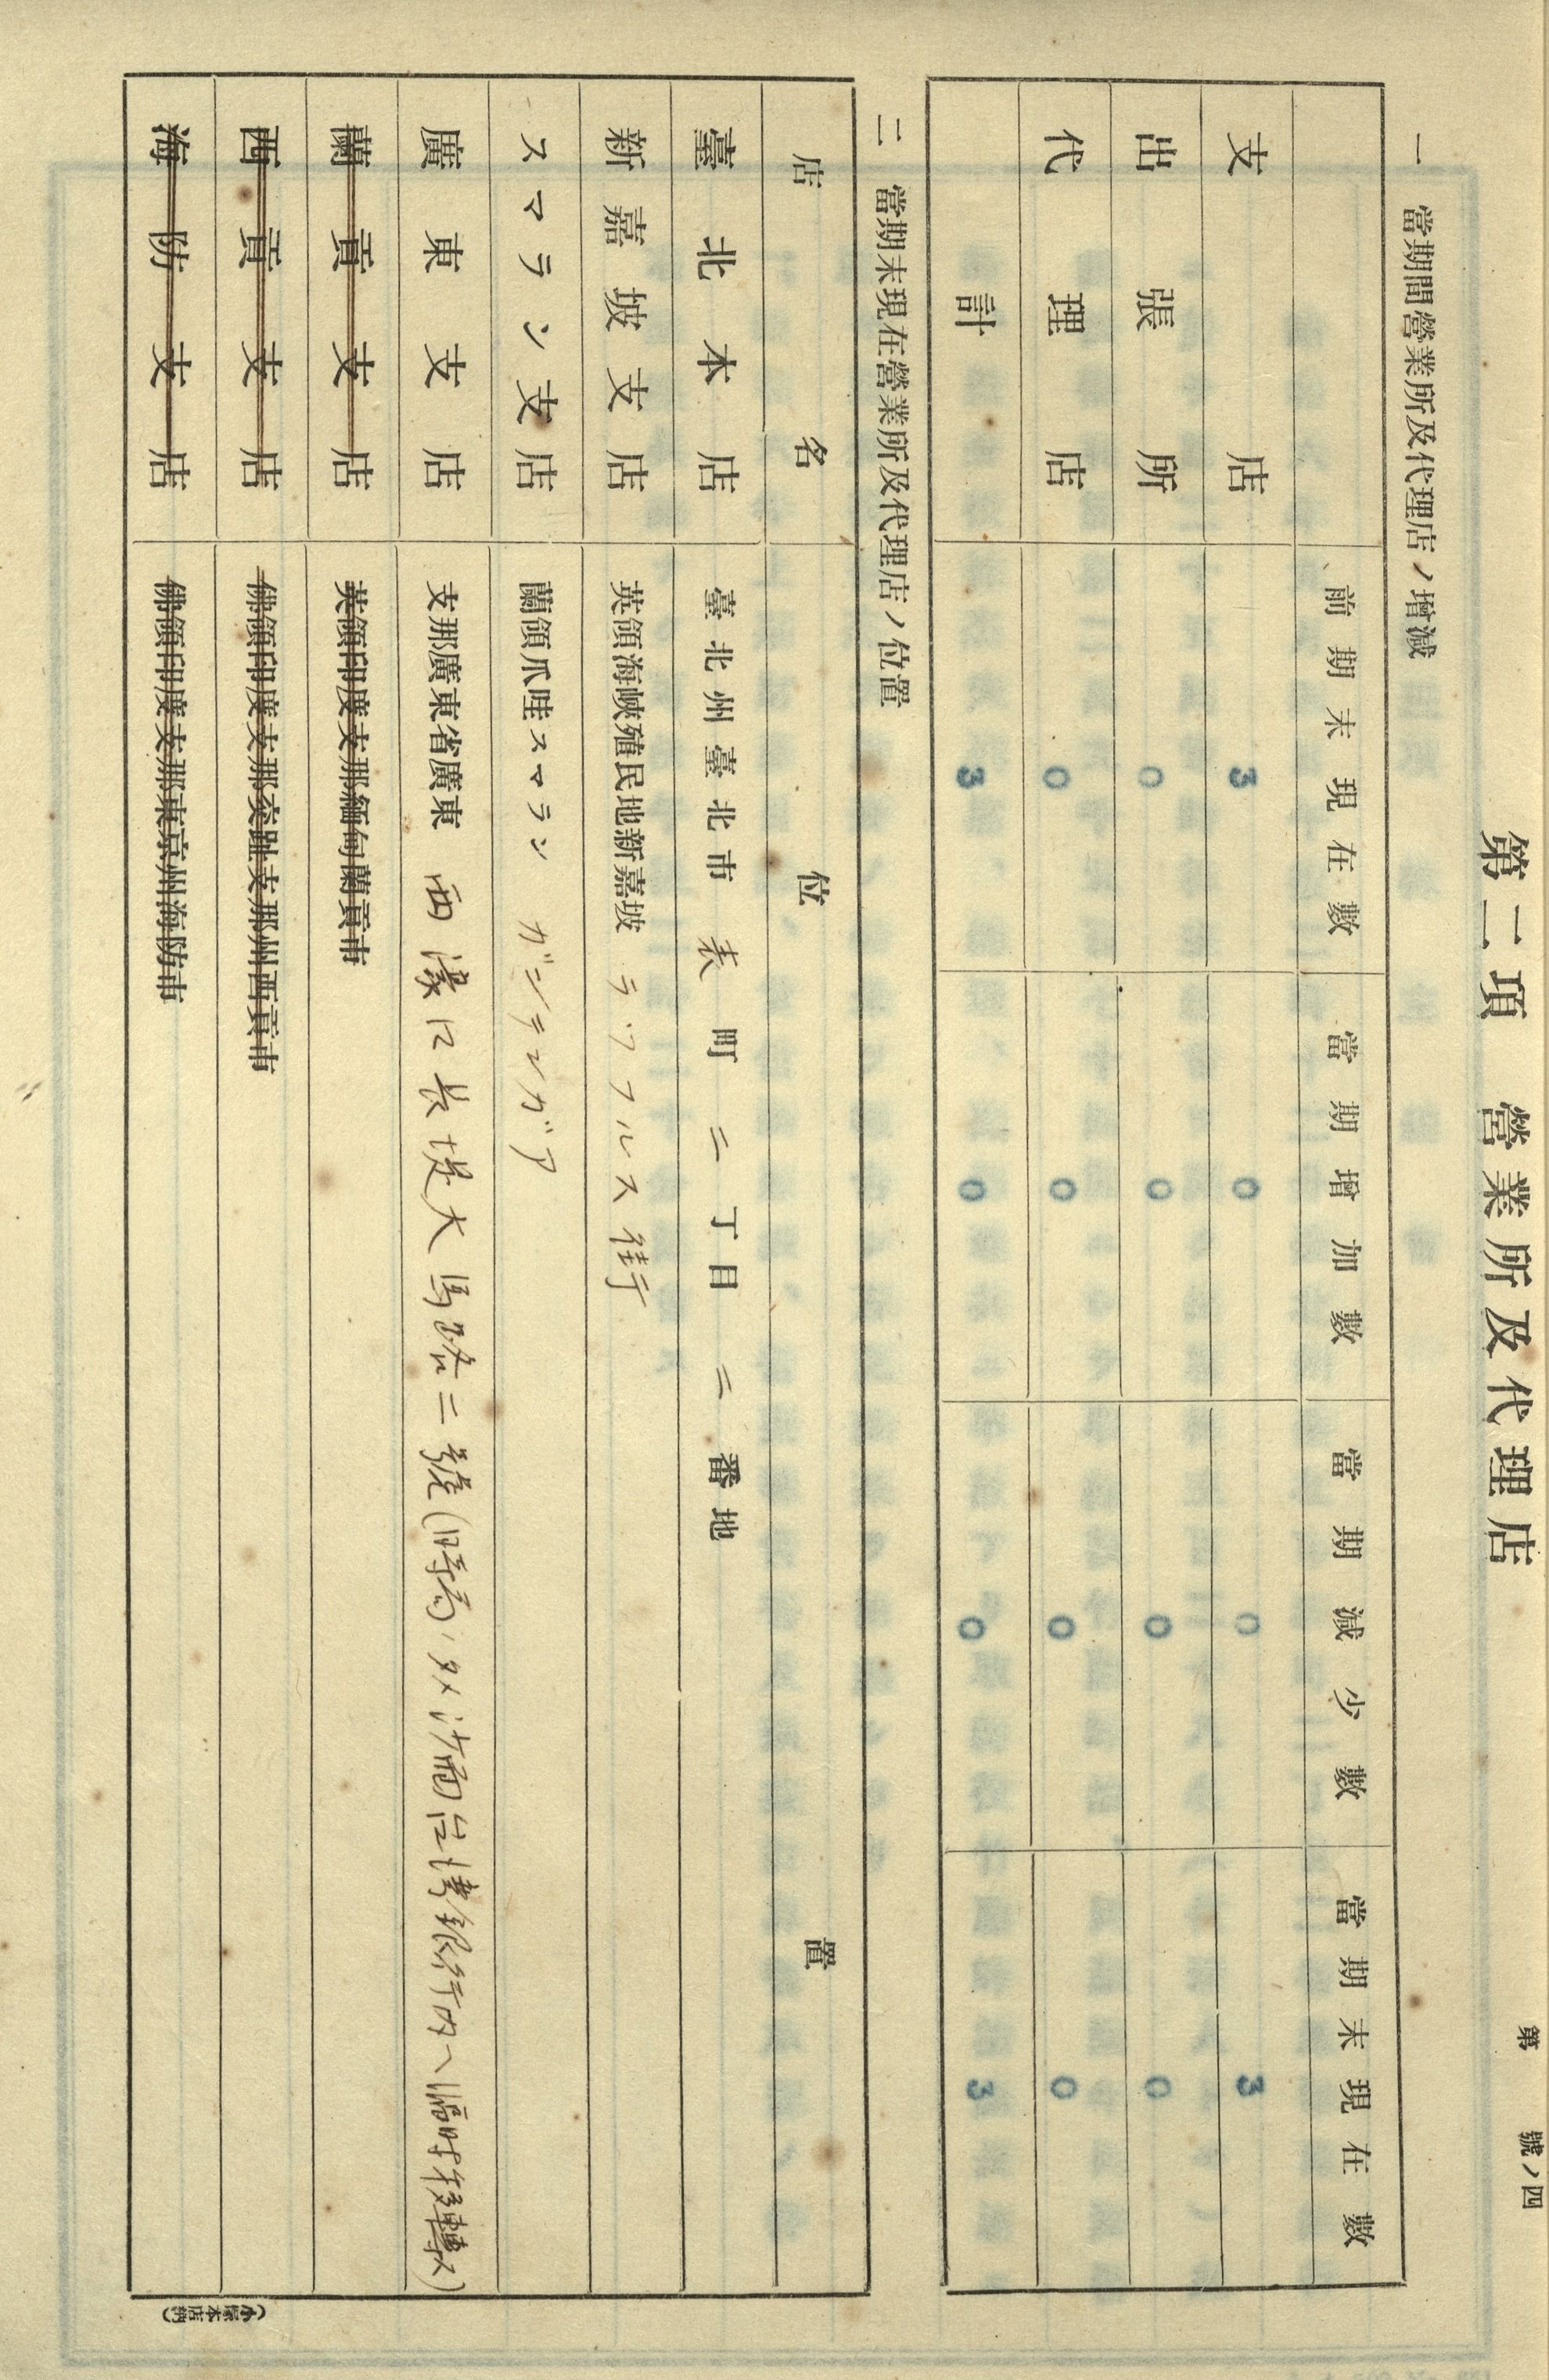 第 號ノ四
第二項 營業所及代理店
一 當期間營業所及代理店ノ增減
前期末現在數 當期增加數 當期減少數 當期末現在數
支店 3 0 0 3
出張所 0 0 0 0
代理店 0 0 0 0
計 3 0 0 3
二 當期末現在營業所及代理店ノ位置
店名 位置
臺北本店 臺北州臺北市表町二丁目二番地
新嘉坡支店 英領海峽殖民地新嘉坡 ラッフルス街
スマラン支店 蘭領爪哇スマラン ガンテンガア
廣東支店 支那廣東省廣東 西濠口長堤大馬路二號(時局ノタメ沙面台灣銀行內ヘ臨時移轉ス)
蘭貢支店 英領印度支那緬甸蘭貢市
西貢支店 佛領印度支那交趾支那州西貢市
海防支店 佛領印度支那東京州海防市
(小塚本店納)